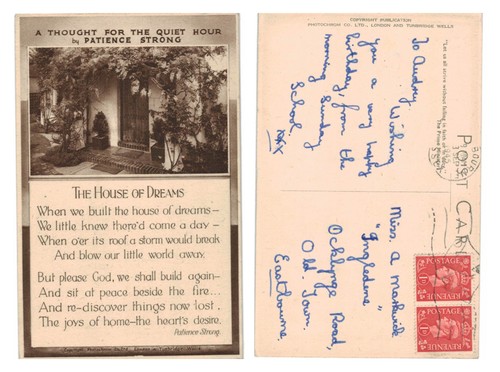 A THOUGHT FOR THE QUIET HOUR
by PATIENCE STRONG
THE HOUSE OF DREAMS
When we built the house of dreams—
We little knew there'd come a day —
When o'er its roof a storm would break
And blow our little world away.
But please God, we shall build again—
And sit at peace beside the fire...
And re-discover things now lost,
The joys of home—the heart's desire.
Patience Strong.
COPYRIGHT PUBLICATION
PHOTOCHROM CO. LTD., LONDON AND TUNBRIDGE WELLS
To Audrey Wishing
you a very happy
birthday, from the
morning Sunday
School.
xxx
The Prime Minister
POST CARD
Miss. A
"Ingledene"
Ocklynge Road,
Old Town,
Eastbourne.
POSTAGE
REVENUE
POSTAGE
REVENUE